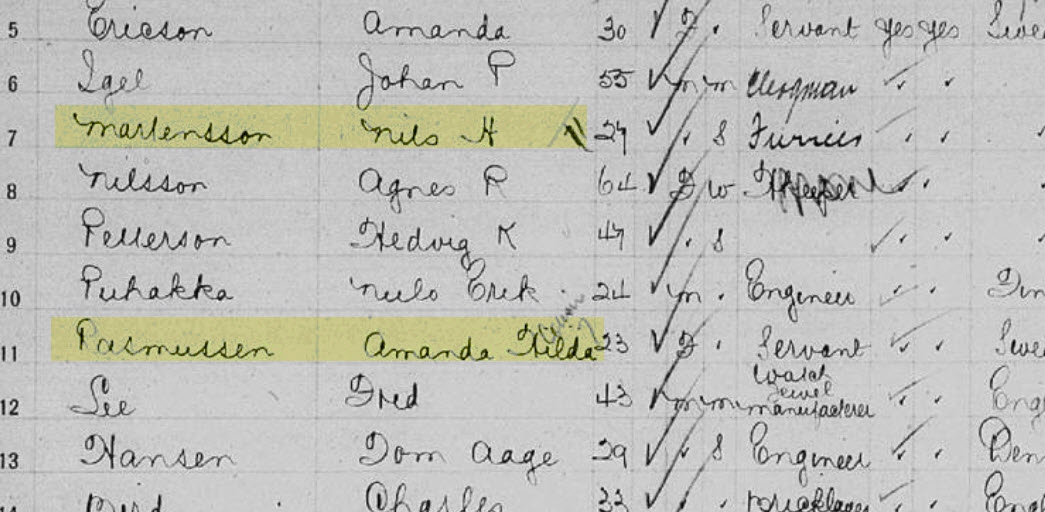 5 Ericson Amanda 30 F. Servant yes yes Swe
6 Igel Johan P 55 m m Clergman
7 Martensson Nils H 29 . S Furrier
8 Nilsson Agnes R 64 F W
9 Pellerson Hedvig K 47 . S
10 Puhakka Niilo Erik 24 m . Engineer Fin
11 Rasmussen Amanda Hilda 23 F . Servant Swe
12 Lee Fred 43 m m Watch Jewel manufacterer Eng
13 Hansen Dom Aage 29 . S Engineer Den
Charles 33 Bricklayer Engl